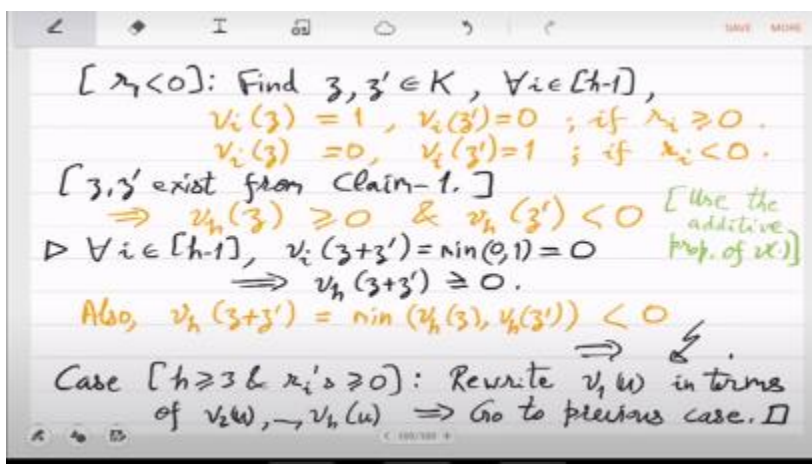 SAVE MORE
[r₁<0]: Find z, z' ∈ K, ∀i∈[h-1],
v_i(z) = 1, v_i(z')=0 ; if r_i ≥ 0.
v_i(z) = 0, v_i(z')=1 ; if r_i < 0.
[z,z' exist from Claim-1.]
⇒ v_h(z) ≥ 0 & v_h(z') < 0
[Use the additive prop. of v(.)]
▷ ∀i∈[h-1], v_i(z+z') = min(0,1) = 0
⇒ v_h(z+z') ≥ 0.
Also, v_h(z+z') = min(v_h(z), v_h(z')) < 0
⇒ ↯.
Case [h≥3 & r_i's ≥0]: Rewrite v₁(u) in terms
of v₂(u),…,v_h(u) ⇒ Go to previous case. □
< 100/100 +